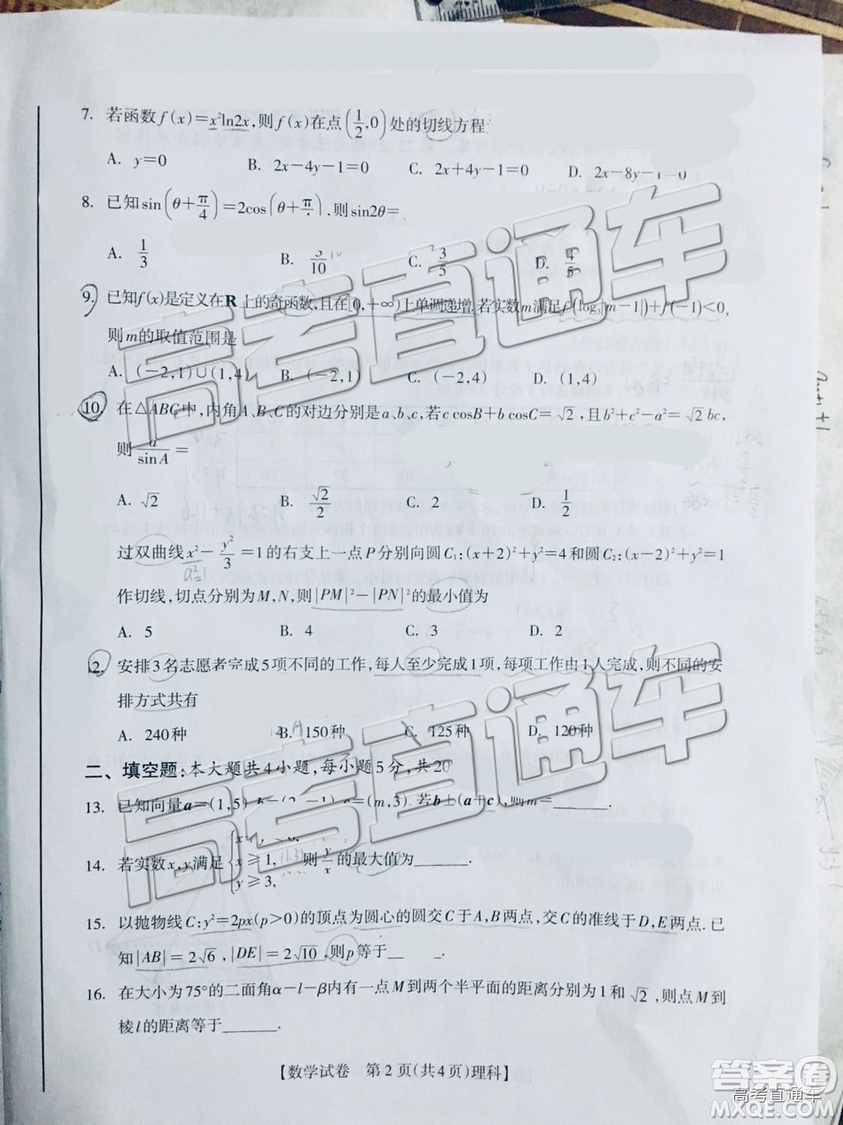 7. 若函数f(x)=x²ln2x,则f(x)在点(1/2,0)处的切线方程
A. y=0 B. 2x-4y-1=0 C. 2x+4y-1=0 D. 2x-8y-1=0
8. 已知sin(θ+π/4)=2cos(θ+π/),则sin2θ=
A. 1/3 B. 3/10 C. 3/5 D. 4/5
9. 已知f(x)是定义在R上的奇函数,且在[0,+∞)上单调递增.若实数m满足f(log₃|m-1|)+f(-1)<0,
则m的取值范围是
A. (-2,1)∪(1,4) B. (-2,1) C. (-2,4) D. (1,4)
10. 在△ABC中,内角A、B、C的对边分别是a,b,c,若c cosB+b cosC=√2,且b²+c²-a²=√2 bc,
则a/sinA=
A. √2 B. √2/2 C. 2 D. 1/2
过双曲线x²-y²/3=1的右支上一点P分别向圆C₁:(x+2)²+y²=4和圆C₂:(x-2)²+y²=1
a²=1
作切线,切点分别为M,N,则|PM|²-|PN|²的最小值为
A. 5 B. 4 C. 3 D. 2
2. 安排3名志愿者完成5项不同的工作,每人至少完成1项,每项工作由1人完成,则不同的安
排方式共有
A. 240种 B. 150种 C. 125种 D. 120种
二、填空题:本大题共4小题,每小题5分,共20
13. 已知向量a=(1,5),b=(2,-1),c=(m,3).若b⊥(a+c),则m=______.
14. 若实数x,y满足{x≥1, y≥3, 则y/x的最大值为______.
15. 以抛物线C:y²=2px(p>0)的顶点为圆心的圆交C于A,B两点,交C的准线于D,E两点.已
知|AB|=2√6,|DE|=2√10,则p等于______.
16. 在大小为75°的二面角α-l-β内有一点M到两个半平面的距离分别为1和√2,则点M到
棱l的距离等于______.
【数学试卷 第2页(共4页)理科】
高考直通车
高考直通车
答案圈
高考直通车
MXQE.COM